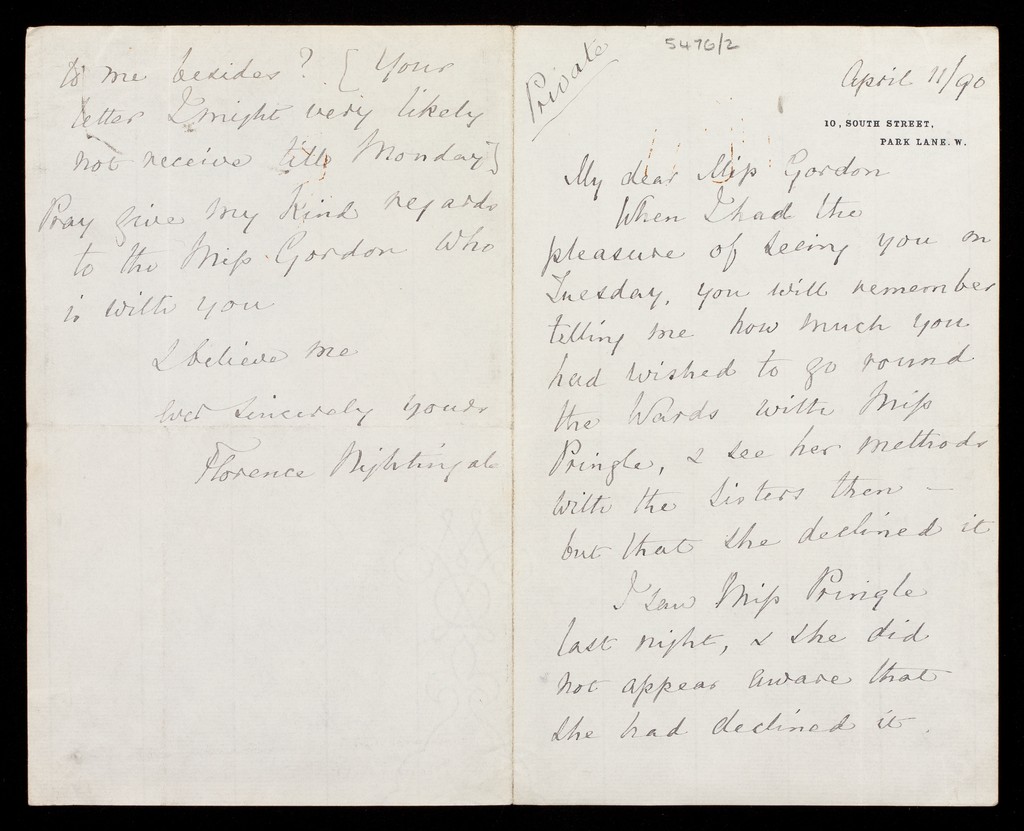 5476/2
Private
April 11/90
10, SOUTH STREET,
PARK LANE. W.
My dear Miss Gordon
When I had the
pleasure of seeing you on
Tuesday, you will remember
telling me how much you
had wished to go round
the Wards with Miss
Pringle, & see her methods
with the Sisters then –
but that she declined it
I saw Miss Pringle
last night, & she did
not appear aware that
she had declined it.
to me besides? [Your
letter I might very likely
not receive till Monday]
Pray give my kind regards
to the Miss Gordon who
is with you
& believe me
ever sincerely yours
Florence Nightingale